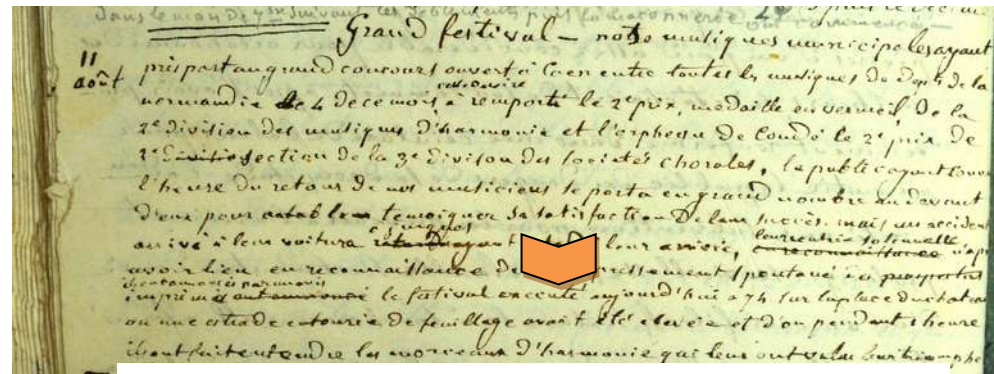 dans le mois de
Grand festival – notre musiques municipales ayant
11
août
pris part au grand concours ouvert à Caen entre toutes les musiques de dépts de la
normandie le 4 de ce mois, a remporté le 2e prix, medaille en vermeil, de la
2e division des musiques d'harmonie et l'orpheon de Condé le 2e prix de
section de la 3e divison des societés chorales, le public ayant
l'heure du retour de nos musiciens se porta en grand nombre au devant
d'eux pour temoigner sa satisfaction de leur succès. mais un accident
arrivé à leur voiture ayant leur arrivée, leur entrée solennelle
avoir lieu, en reconnaissance de spontané
imprimé le festival executé aujourd'hui a 7h sur la place du chateau
ou une estrade entourée de feuillage avait été elevée et d'ou pendant 1 heure
ils ont fait entendre les morceaux d'harmonie qui leur ont valu leur triomphe